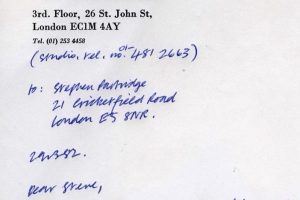 3rd. Floor, 26 St. John St,
London EC1M 4AY
Tel. (01) 253 4458
(studio. tel. no. 01- 481 2663)
to: Stephen Partridge
21 Cricketfield Road
London E5 8NR.
29.3.82.
Dear Steve,